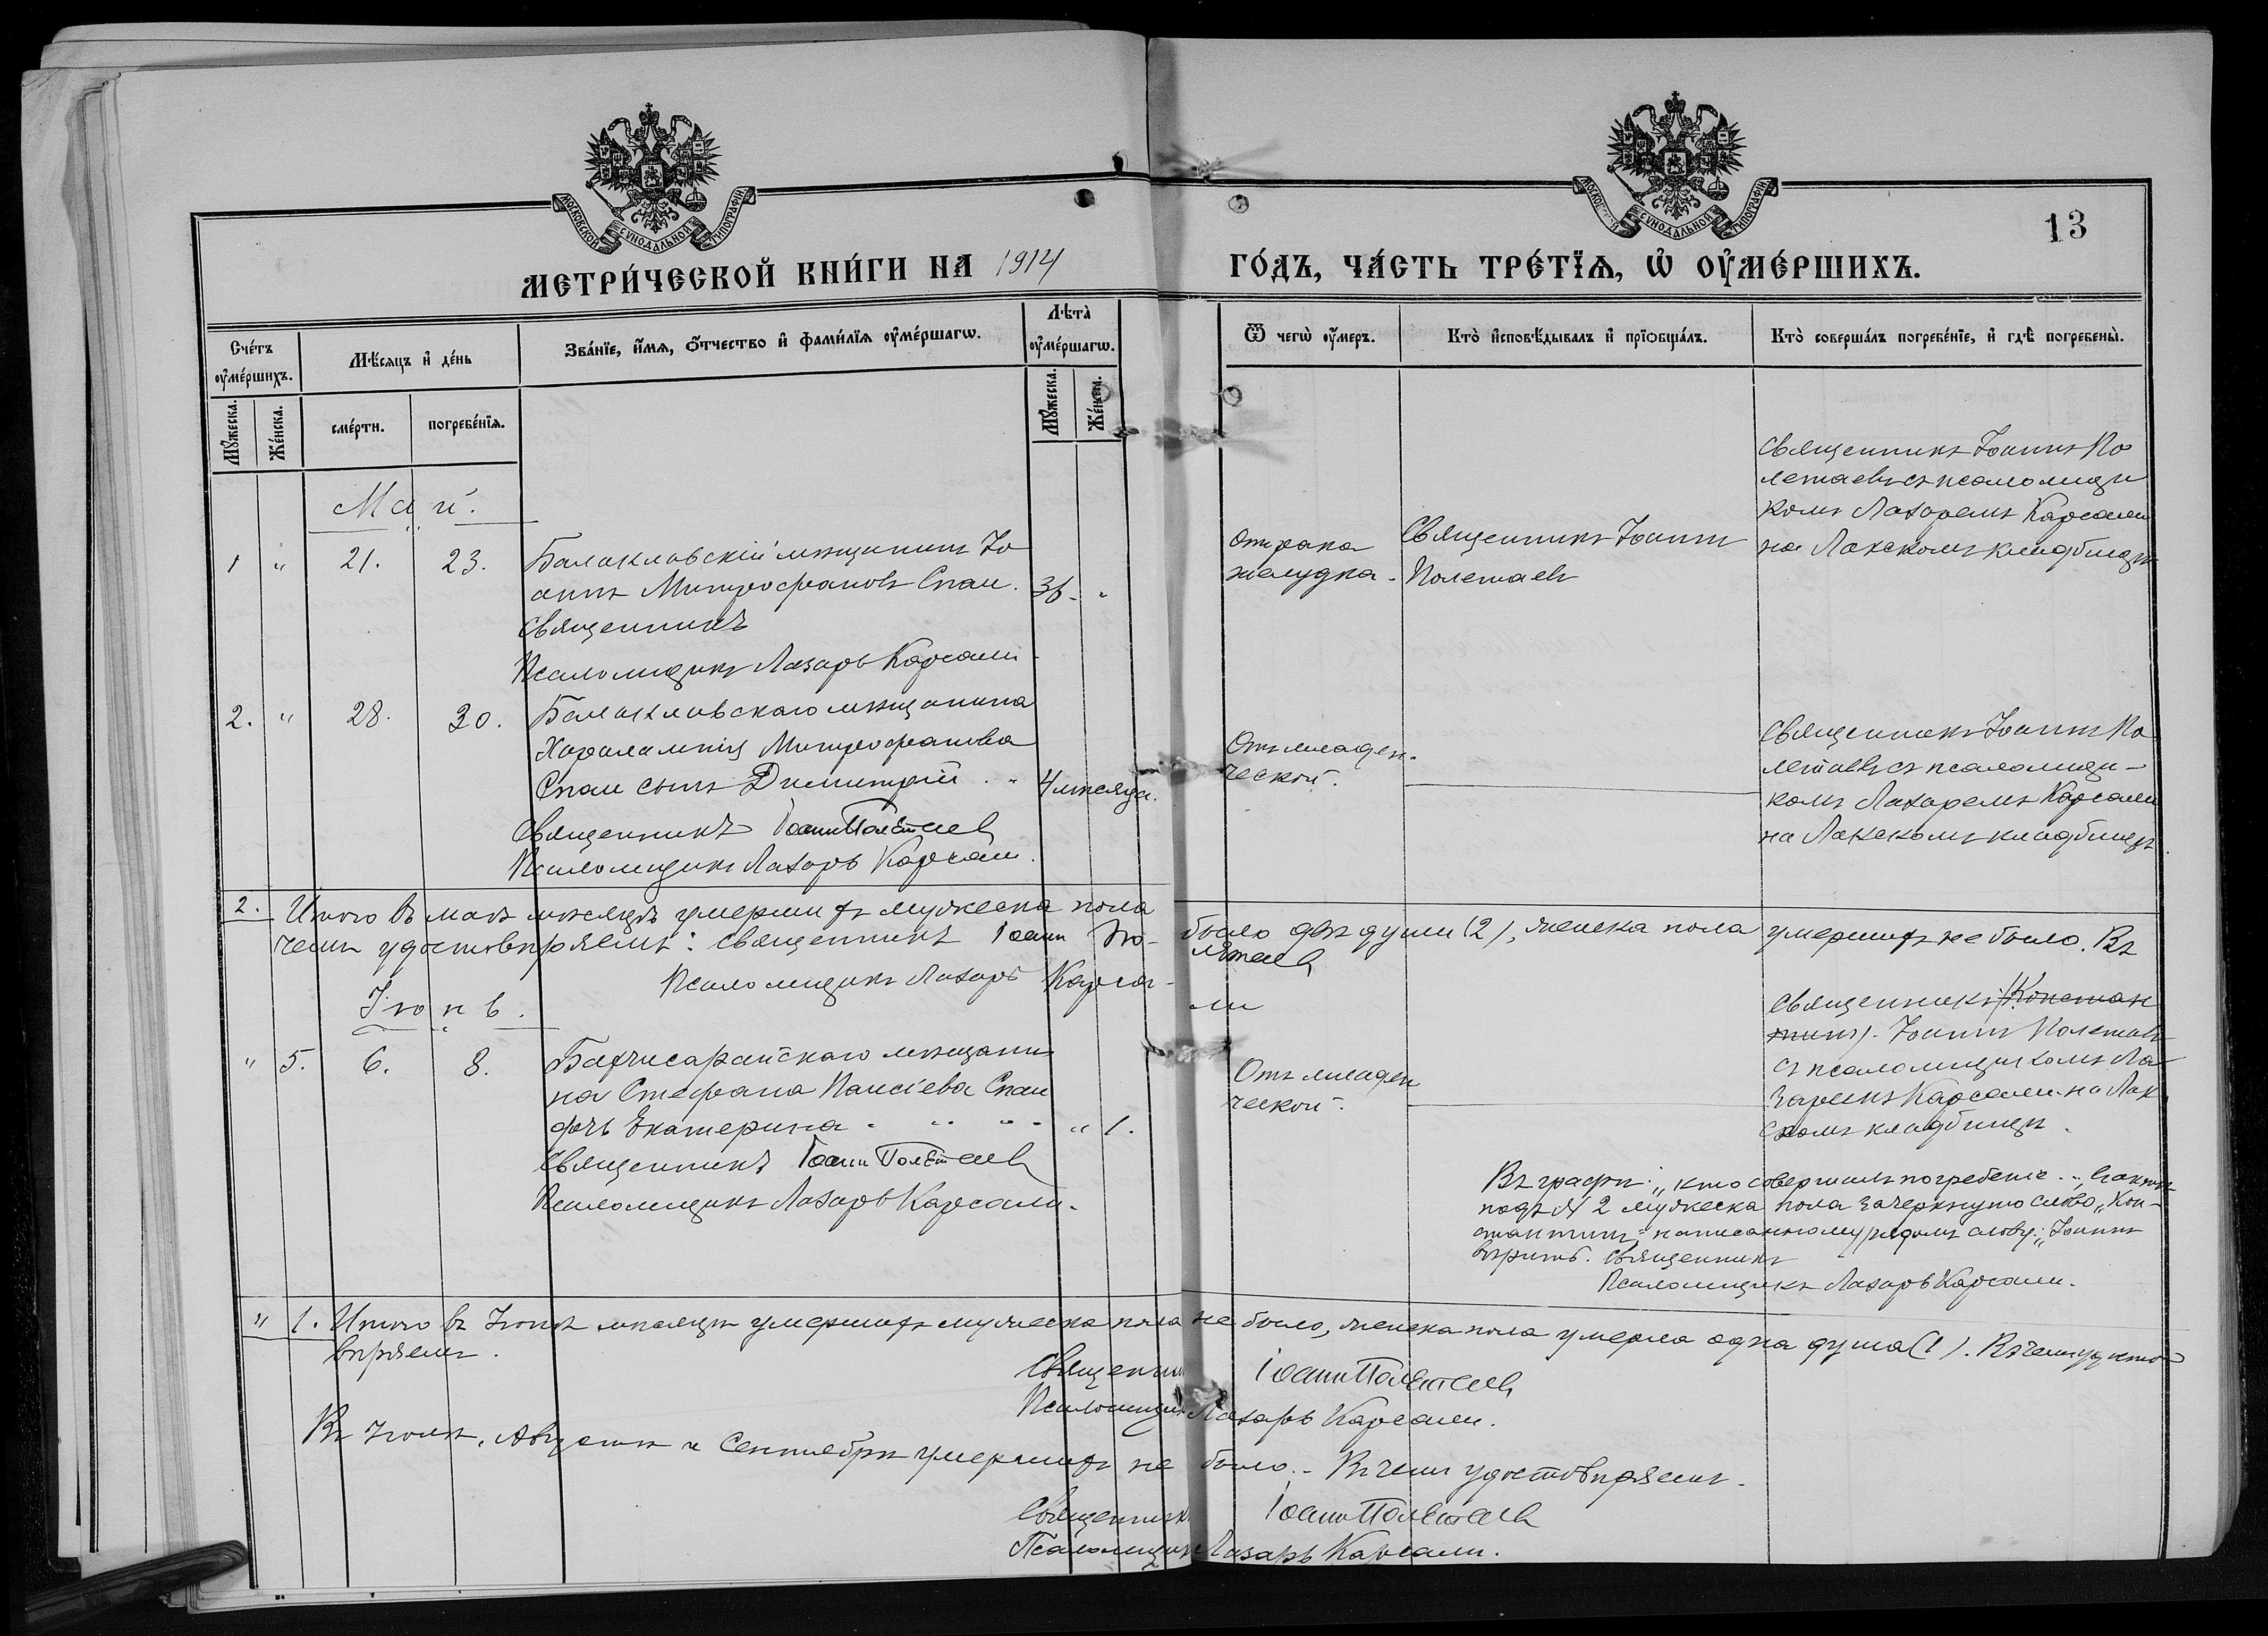 МОСКОВСКОЙ СѴНОДАЛЬНОЙ ТИПОГРАФІИ
МОСКОВСКОЙ СѴНОДАЛЬНОЙ ТИПОГРАФІИ
13
МЕТРИ́ЧЕСКОЙ КНИ́ГИ НА 1914 ГО́ДЪ, ЧА́СТЬ ТРЕ́ТЇѦ, Ѡ҆ ОУ҆МЕ́РШИХЪ.
Сче́тъ оу҆ме́ршихъ.
Мꙋ́жеска.
Же́нска.
Мѣ́сѧцъ и҆ де́нь
сме́рти.
погребе́нїѧ.
Зва́нїе, и҆́мѧ, ѻ҆́тчество и҆ фами́лїѧ оу҆ме́ршагѡ.
Лѣта̀ оу҆ме́ршагѡ.
Мꙋ́жеска.
Же́нска.
Ѿ чегѡ̀ оу҆́меръ.
Кто̀ и҆сповѣ́дывалъ и҆ прїѻбща́лъ.
Кто̀ соверша́лъ погребе́нїе, и҆ гдѣ̀ погребены̀.
Май.
1 " 21. 23. Балаклавскій мѣщанинъ Іо
аннъ Митрофановъ Спаи. 36. "
Священникъ
Псаломщикъ Лазарь Карсали
Отъ рака
желудка.
Священникъ Іоаннъ
Полетаевъ
Священникъ Іоаннъ По
летаевъ съ псаломщи
комъ Лазаремъ Карсали
на Лакскомъ кладбищѣ
2. " 28. 30. Балаклавскаго мѣщанина
Харалампія Митрофанова
Спаи сынъ Димитрій . " 4 мѣсяца.
Священникъ Іоанн Полетаев
Псаломщикъ Лазарь Карсали.
Отъ младен-
ческой.
Священникъ Іоаннъ По
летаевъ съ псаломщи-
комъ Лазаремъ Карсали
на Лакскомъ кладбищѣ.
2. Итого въ маѣ мѣсяцѣ умершихъ мужеска пола было двѣ души (2), женска пола умершихъ не было. Въ
чемъ удостовѣряемъ: священникъ Іоанн По-летаев
Псаломщикъ Лазарь Карса-ли
Іюнь.
" 5. 6. 8. Бахчисарайскаго мѣщани
на Стефана Паисіева Спаи
дочь Екатерина " " " " 1.
Священникъ Іоанн Полетаев
Псаломщикъ Лазарь Карсали.
Отъ младен
ческой.
Священникъ (Констан
тинъ). Іоаннъ Полетаевъ
съ псаломщикомъ Ла
заремъ Карсали на Лак
скомъ кладбищѣ.
Въ графѣ: „кто совершалъ погребеніе..,
подъ № 2 мужеска пола зачеркнуто слово „Кон-
стантинъ" написанному рядомъ слову: „Іоаннъ
вѣрить. Священникъ
Псаломщикъ Лазарь Карсали.
" 1. Итого въ Іюнѣ мѣсяцѣ умершихъ мужеска пола не было, женска пола умерла одна душа (1). Въ чемъ удосто-
вѣряемъ.
Священникъ Іоанн Полетаев
Псаломщикъ Лазарь Карсали.
Въ Іюлѣ, Августѣ и Сентябрѣ умершихъ не было. - Въ чемъ удостовѣряемъ.
Священникъ Іоанн Полетаев
Псаломщикъ Лазарь Карсали.